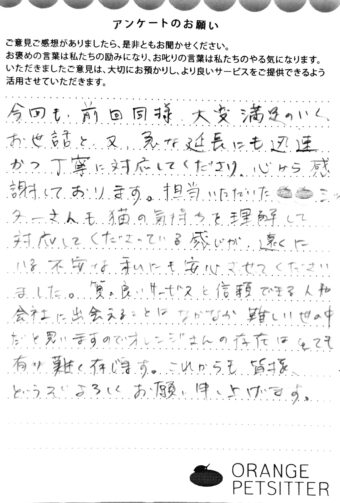 アンケートのお願い
ご意見ご感想がありましたら、是非ともお聞かせください。
お褒めの言葉は私たちの励みになり、お叱りの言葉は私たちのやる気になります。
いただきましたご意見は、大切にお預かりし、より良いサービスをご提供できるよう
活用させていただきます。
今回も、前回同様、大変満足のいく、
お世話と、又、急な延長にも迅速
かつ丁寧に対応してくださり、心から感
謝しております。担当いただいた シッ
ターさんも猫の気持ちを理解して
対応してくださっている感じが、遠くに
いる不安な私にも安心させてください
ました。質の良いサービスと信頼できる人や
会社に出会えることはなかなか難しい世の中
だと思いますのでオレンジさんの存在はとても
有り難く存じます。これからも皆様、
どうぞよろしくお願い申し上げます。
ORANGE
PETSITTER